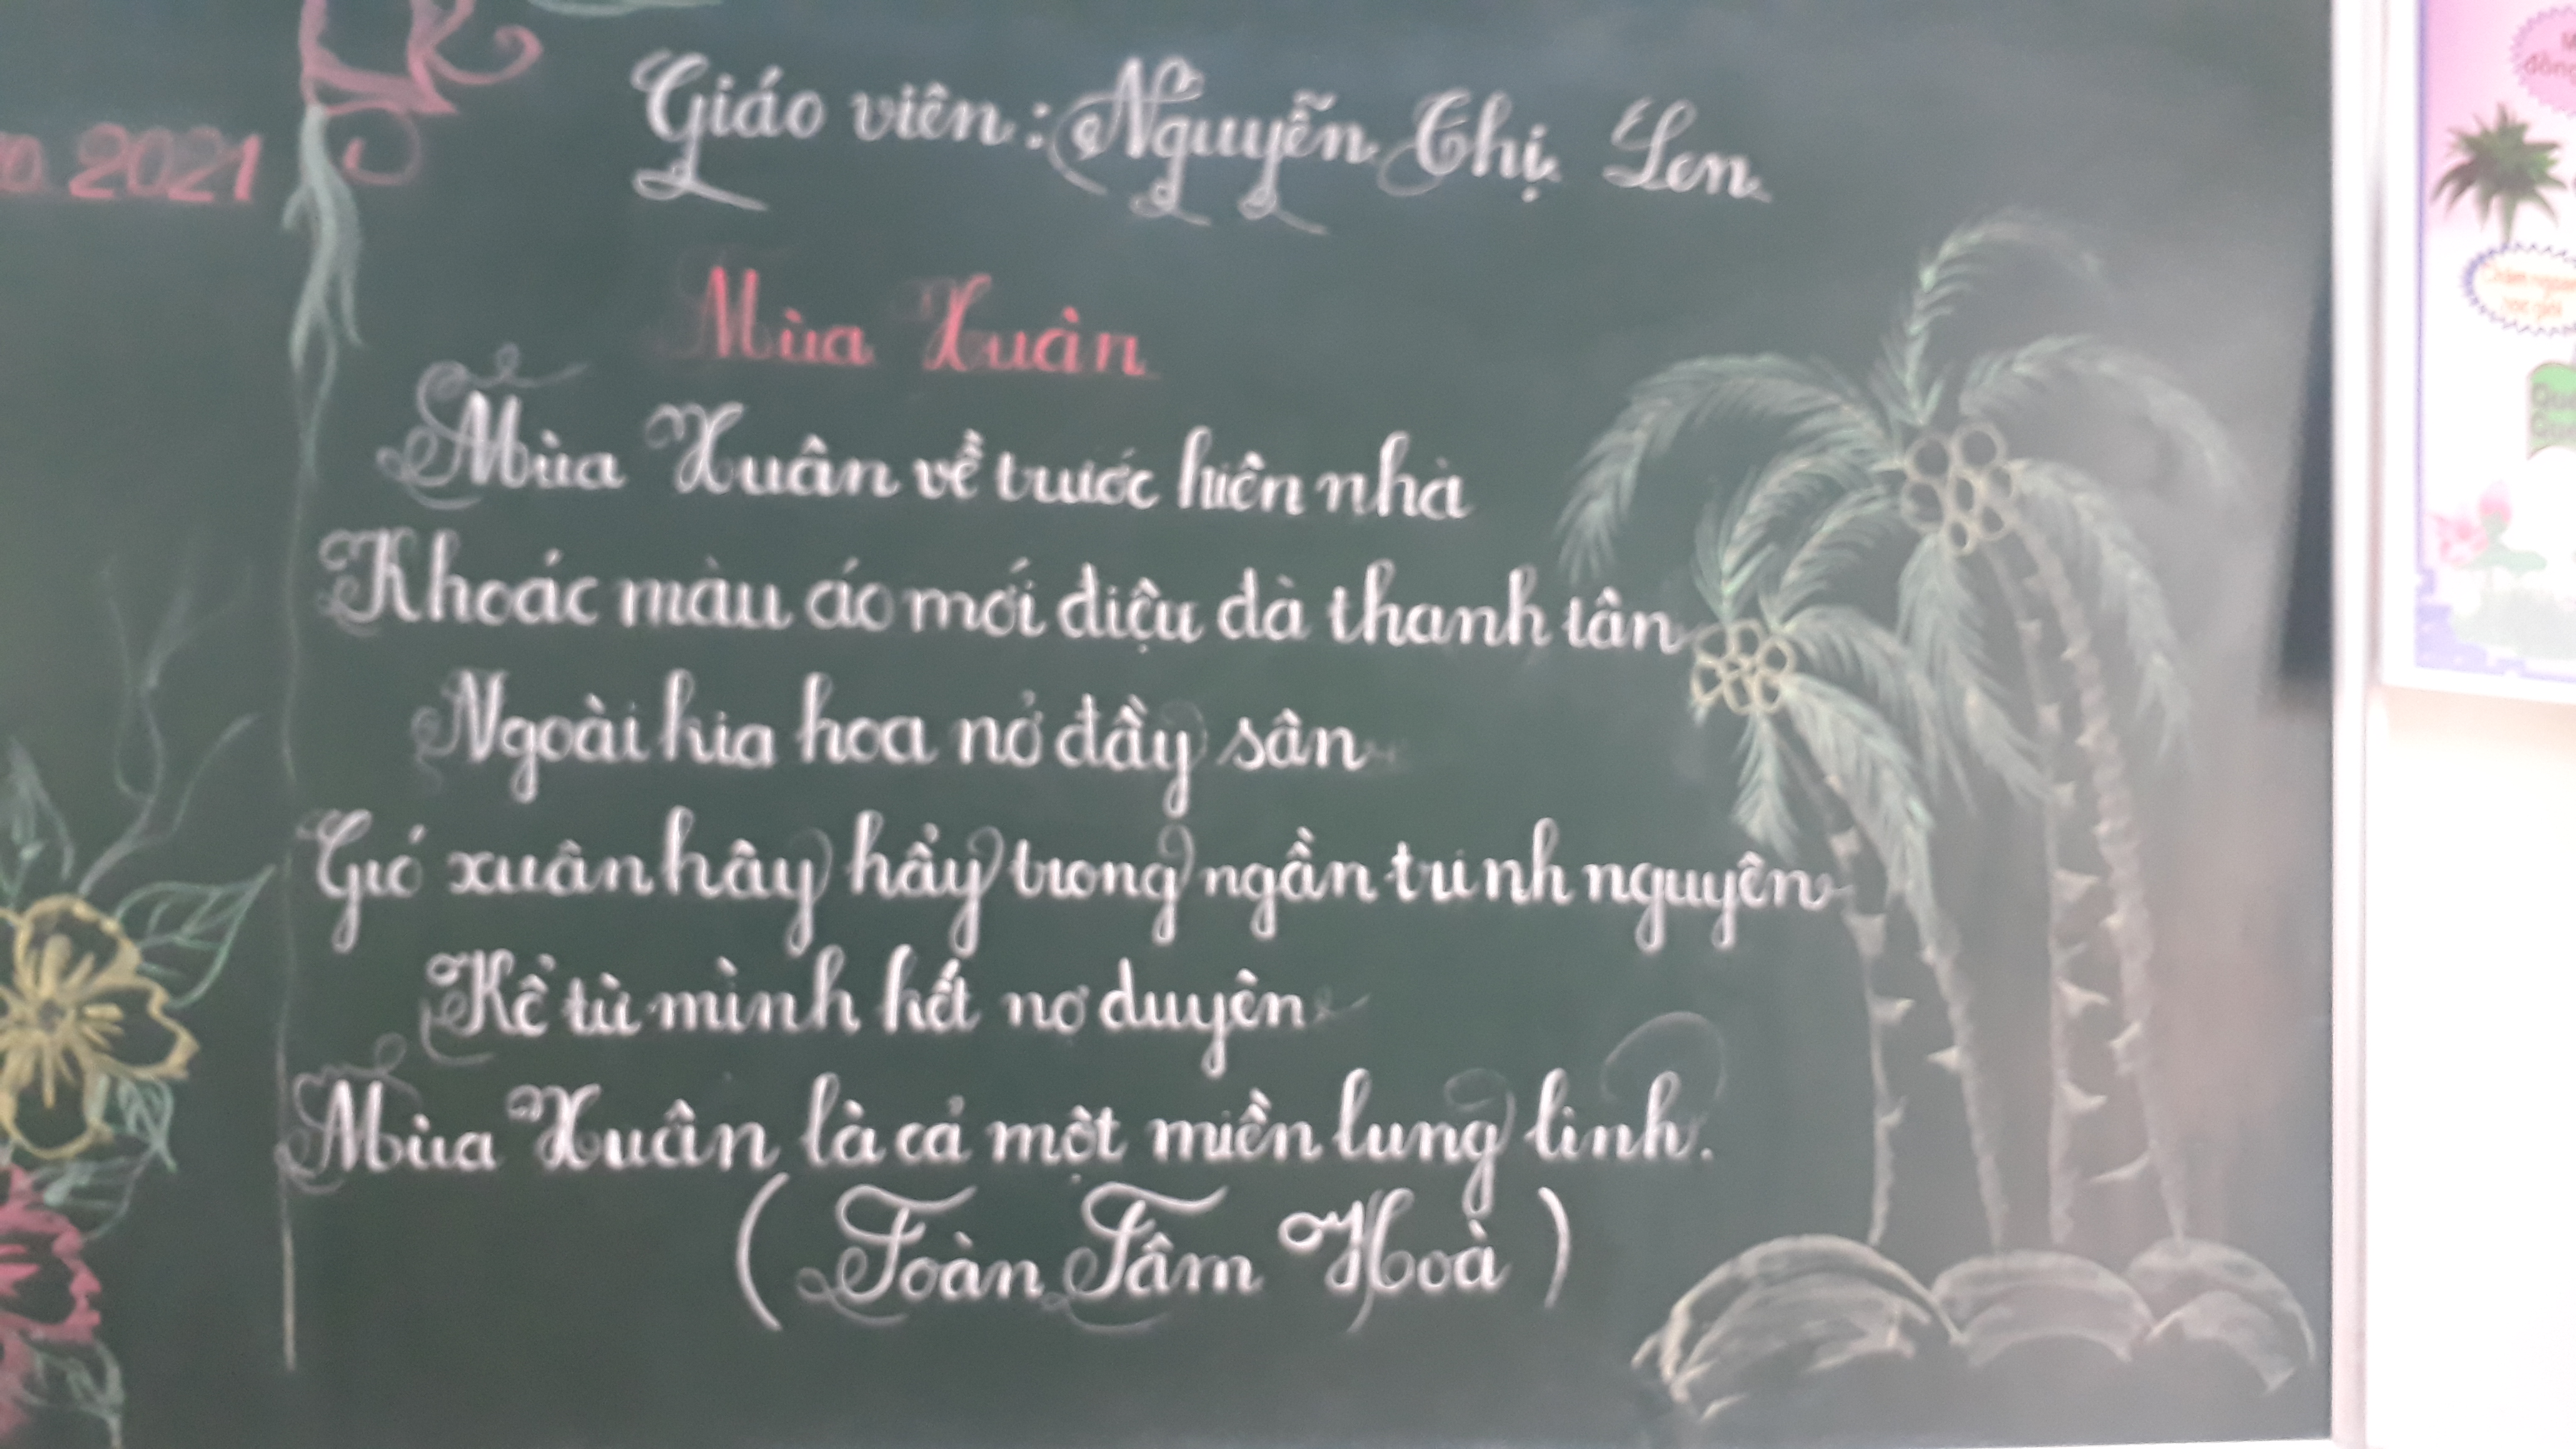 2021
Giáo viên: Nguyễn Thị Len
Mùa Xuân
Mùa Xuân về trước hiên nhà
Khoác màu áo mới diệu dà thanh tân
Ngoài kia hoa nở đầy sân
Gió xuân hây hẩy trong ngần trinh nguyên
Kể từ mình kết nợ duyên
Mùa Xuân là cả một miền lung linh.
( Toàn Tâm Hoà )